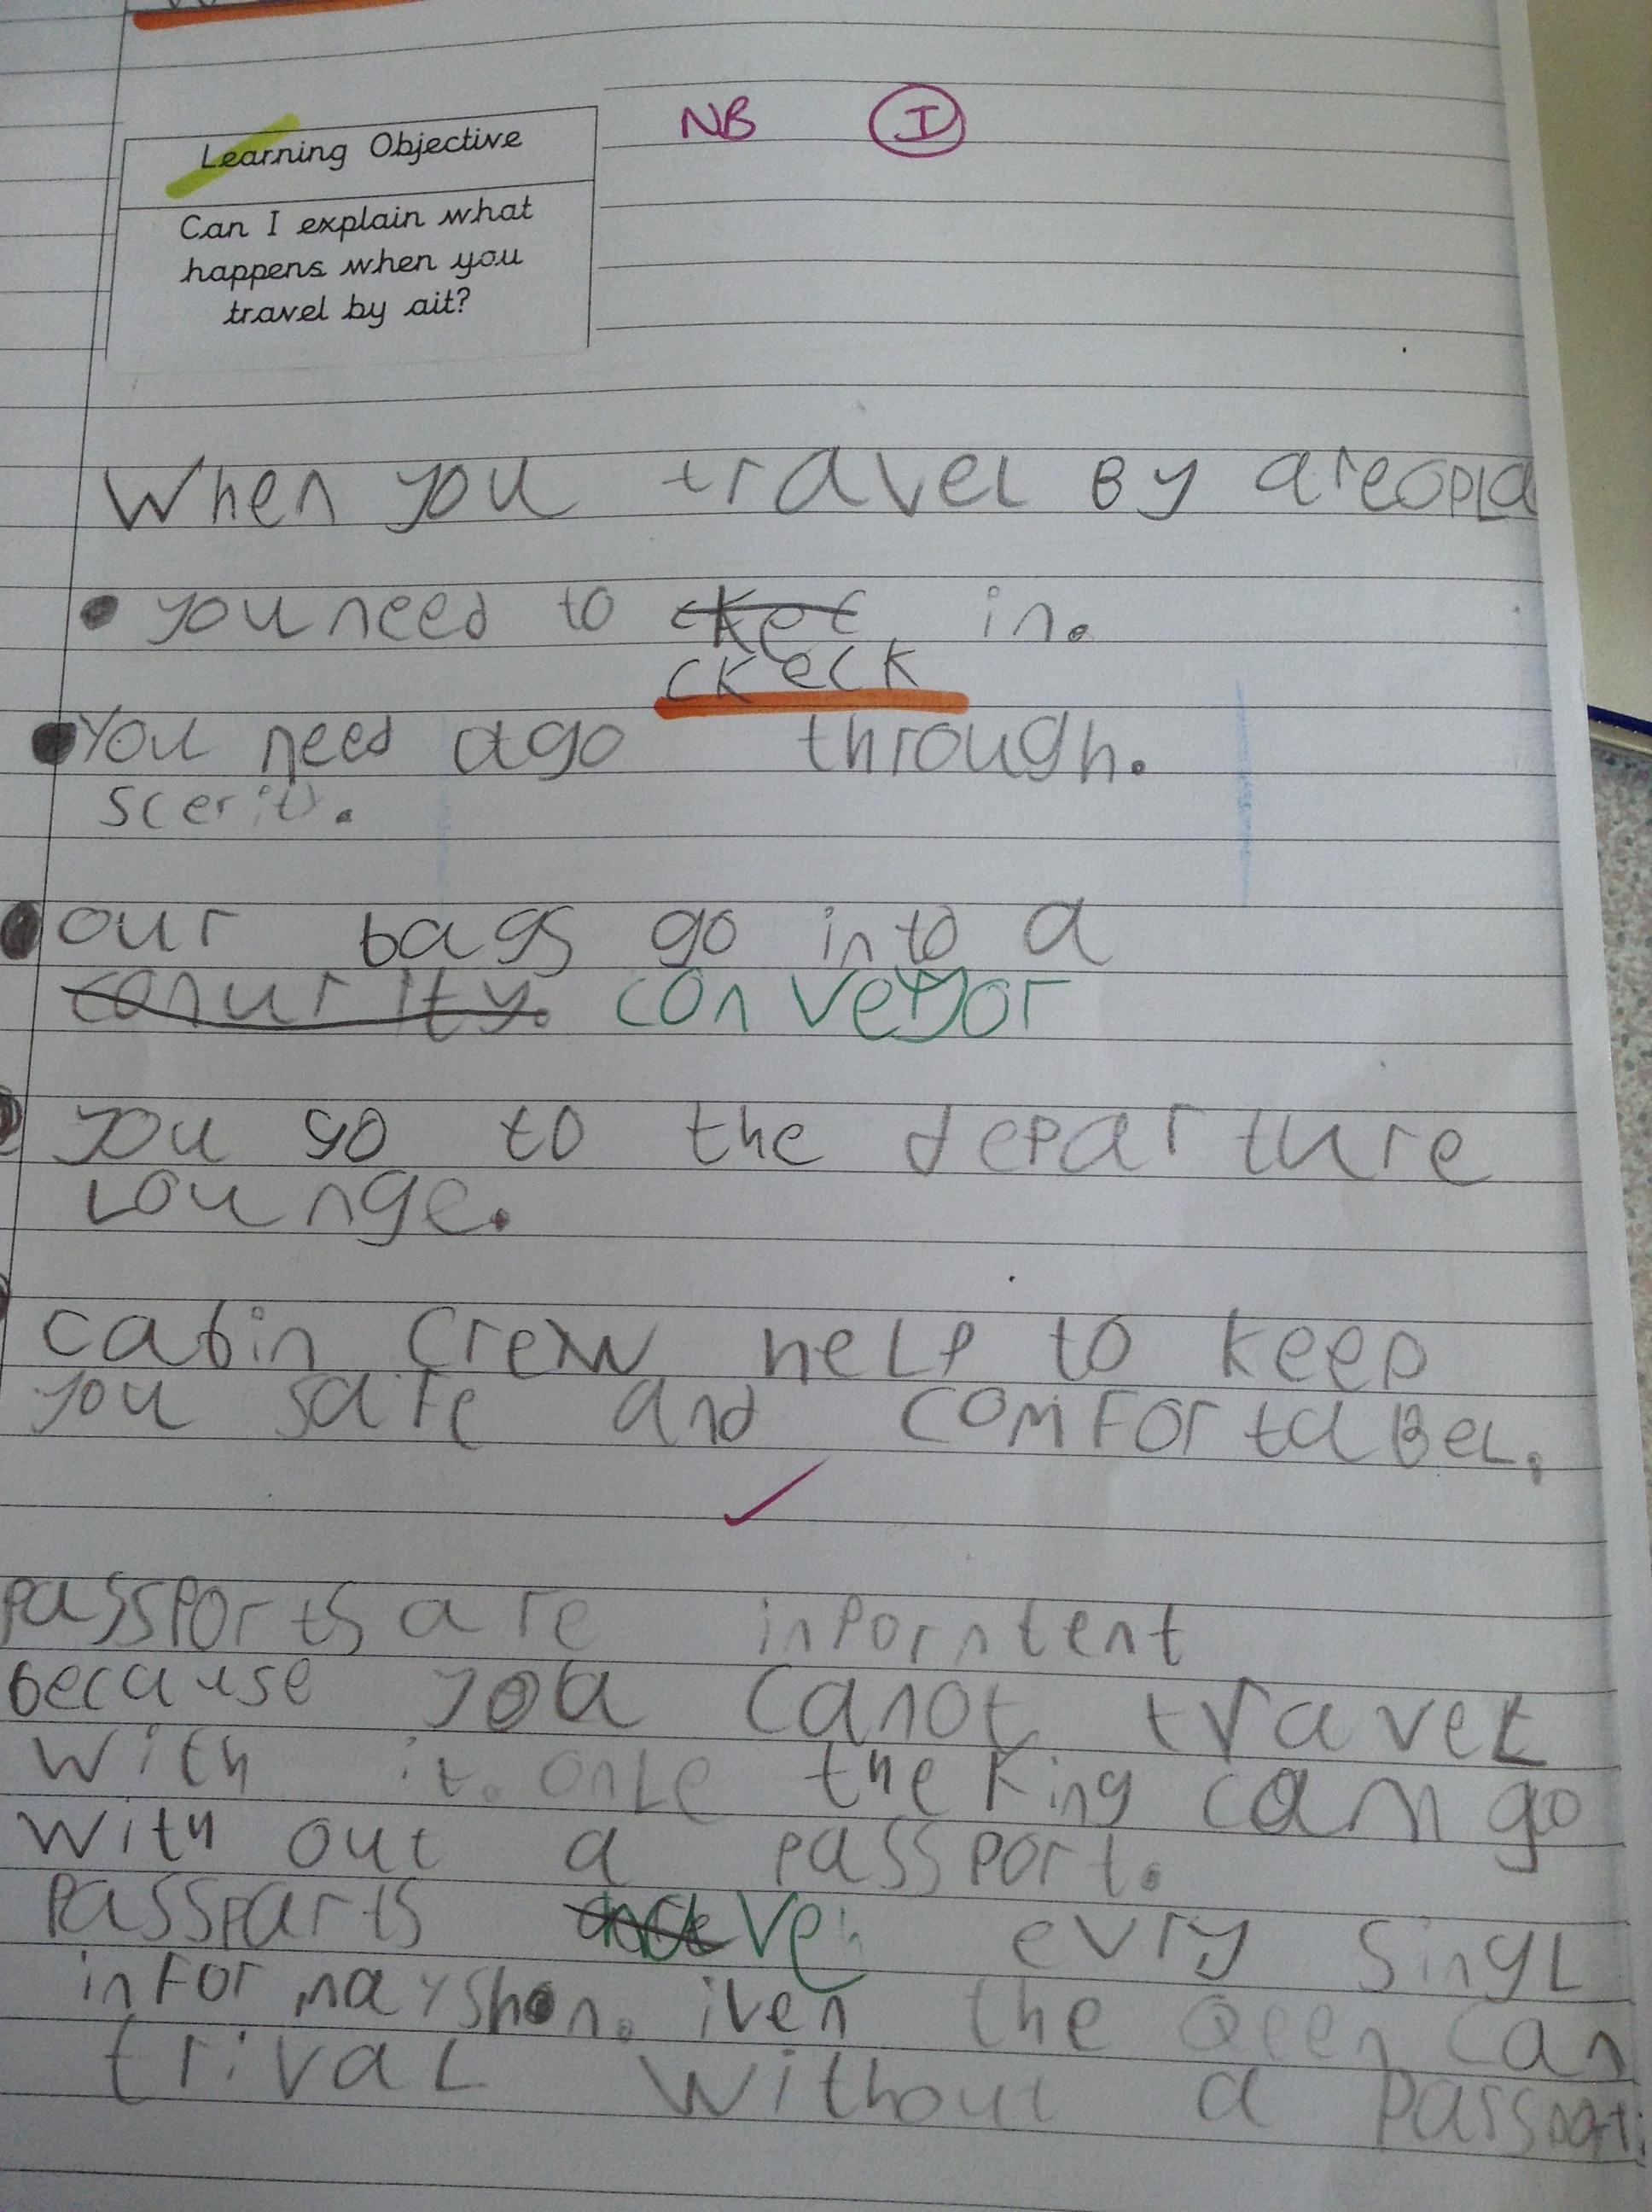 Learning Objective
NB I
Can I explain what
happens when you
travel by ait?
When you travel By areopla
• you need to in.
ckeck
• You need ago through.
• our bags go into a
conurity. conveyor
you go to the departure
Lounge.
cabin crew help to keep
you safe and comfortaBeL.
passports are inporntent
because you canot travel
with it. onLe the King can go
with out a passport.
Passparts have evry singL
informayshon. iven the Qeen can
trival without a passport.